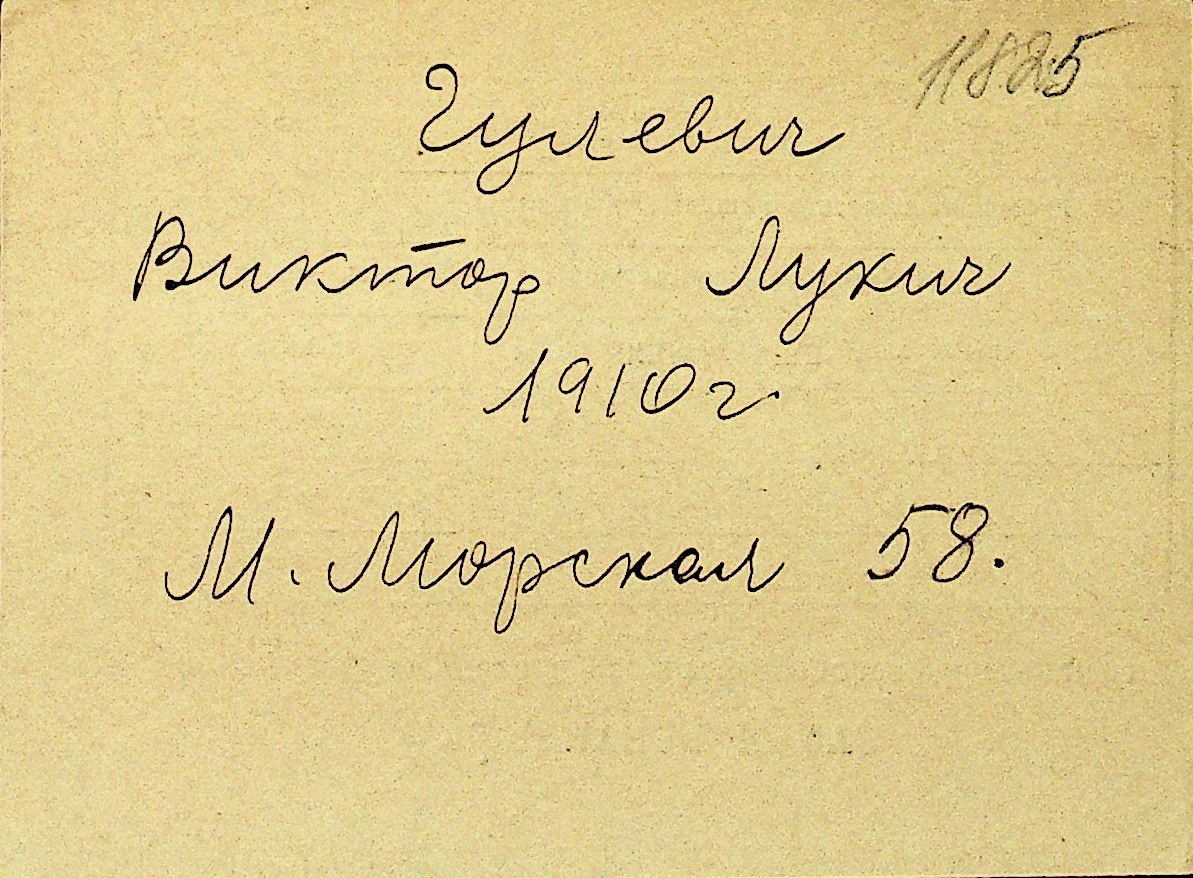 11825
Гулевич
Виктор Лукич
1910 г.
М. Морская 58.